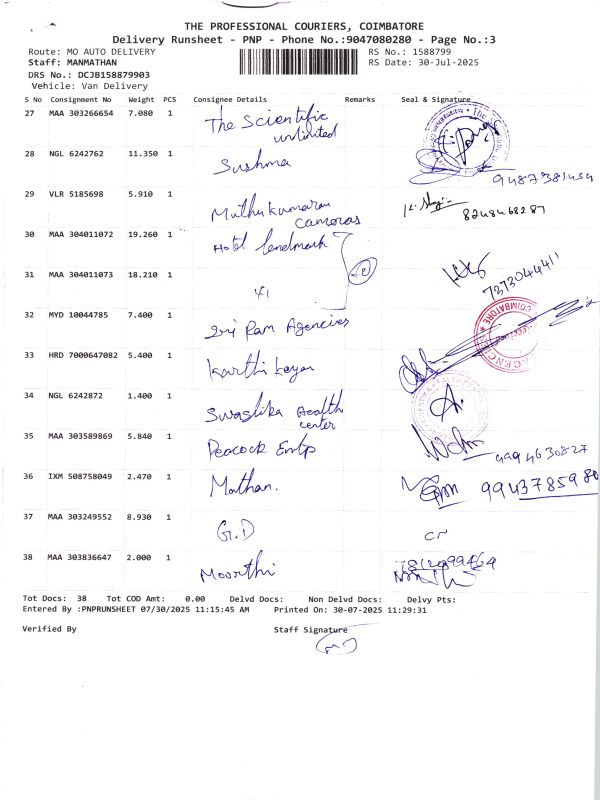 THE PROFESSIONAL COURIERS, COIMBATORE
Delivery Runsheet - PNP - Phone No.:9047080280 - Page No.:3
Route: MO AUTO DELIVERY RS No.: 1588799
Staff: MANMATHAN RS Date: 30-Jul-2025
DRS No.: DCJB158879903
Vehicle: Van Delivery
S No Consignment No Weight PCS Consignee Details Remarks Seal & Signature
27 MAA 303266654 7.080 1 The Scientific
unlimited
28 NGL 6242762 11.350 1 Sushma 9487381454
29 VLR 5185698 5.910 1 Muthukumaran
Cameras 8248468287
30 MAA 304011072 19.260 1 Hotel landmark
31 MAA 304011073 18.210 1 7373044411
32 MYD 10044785 7.400 1 Sri Ram Agencies COIMBATORE
33 HRD 7000647082 5.400 1 Karthikeyan
34 NGL 6242872 1.400 1 Swastika Health
center
35 MAA 303589869 5.840 1 Peacock Entp 9994630827
36 IXM 508758049 2.470 1 Mathan. 9943785980
37 MAA 303249552 8.930 1 G.D
38 MAA 303836647 2.000 1 Moorthi
Tot Docs: 38 Tot COD Amt: 0.00 Delvd Docs: Non Delvd Docs: Delvy Pts:
Entered By :PNPRUNSHEET 07/30/2025 11:15:45 AM Printed On: 30-07-2025 11:29:31
Verified By Staff Signature